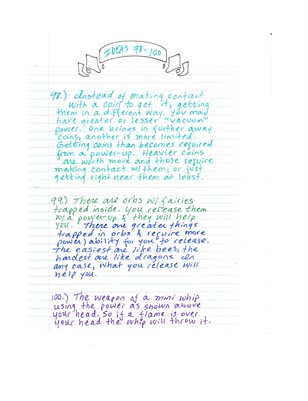 IDEAS 98-100
98.) Instead of making contact
with a coin to get it, getting
them in a different way. You may
have greater or lesser "vacuum"
power. One brings in further away
coins, another is more limited.
Getting coins than becomes required
from a power-up. Heavier coins
are worth more and those require
making contact w/ them, or just
getting right near them at least.
99.) There are orbs w/ fairies
trapped inside. You release them
w/ a power-up & they will help
you. There are greater things
trapped in orbs & require more
power/ability for you to release.
The easiest are like bees, the
hardest are like dragons. In
any case, what you release will
help you.
100.) The weapon of a mini whip
using the power as shown above
your head. So if a flame is over
your head the whip will throw it.